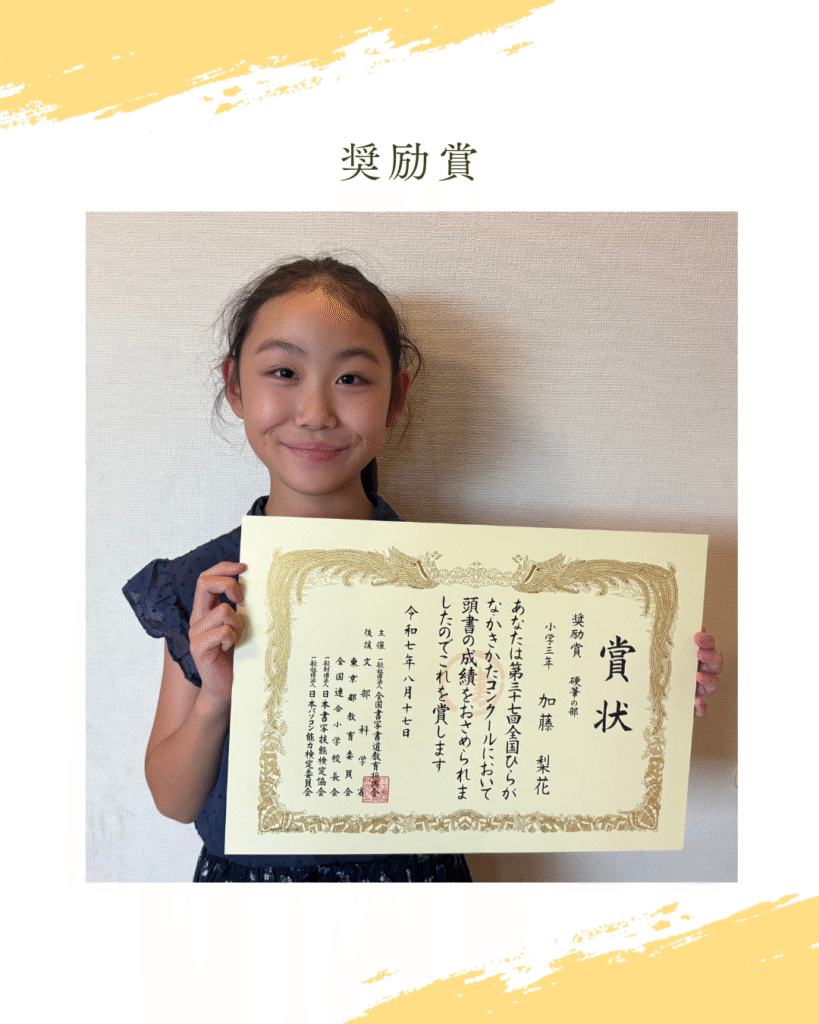 奨励賞
賞状
奨励賞 硬筆の部
小学三年 加藤 梨花
あなたは第三十七回全国ひらが
なかきかたコンクールにおいて
頭書の成績をおさめられま
したのでこれを賞します
令和七年八月十七日
主催 一般社団法人全国書写書道教育振興会
後援 文部科学省
東京都教育委員会
全国連合小学校長会
一般財団法人日本書写技能検定協会
一般社団法人日本パソコン能力検定委員会